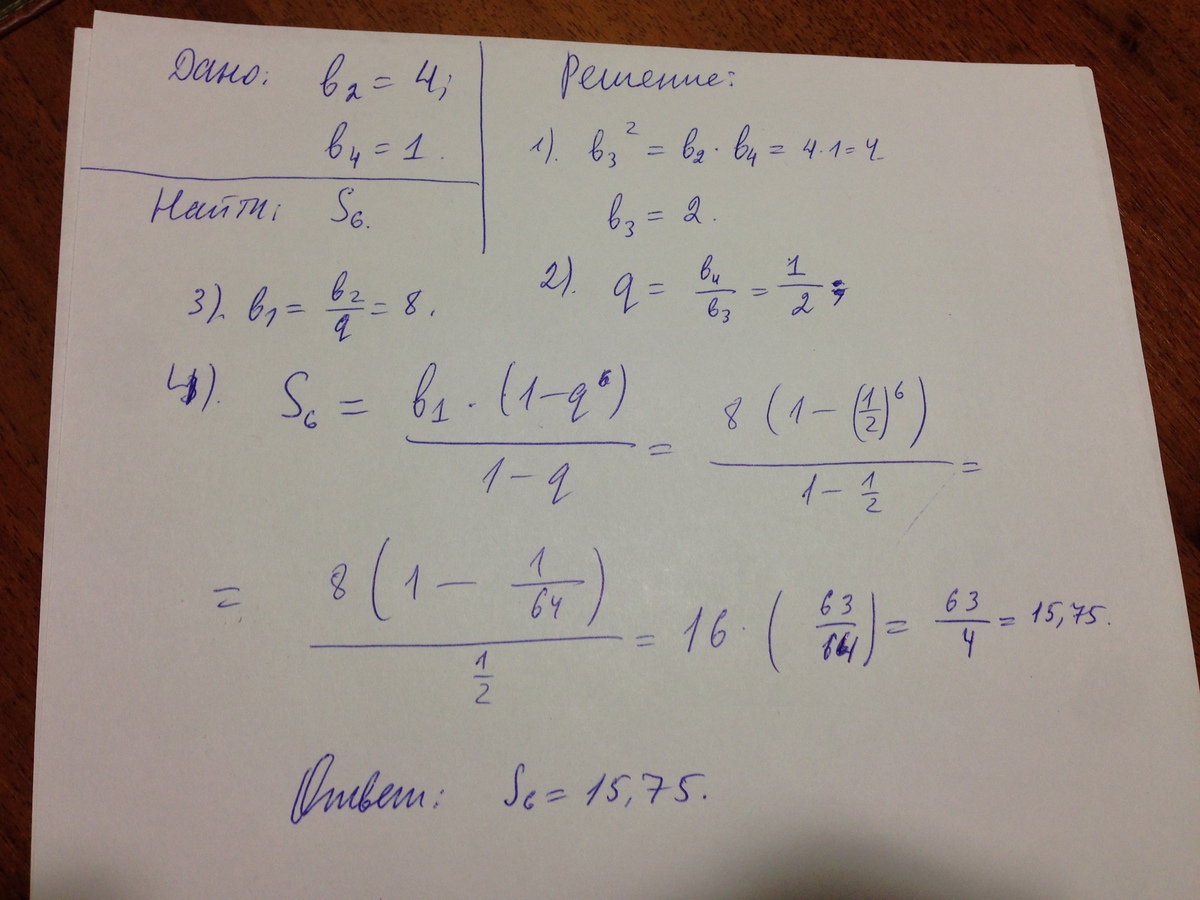 Дано: b₂ = 4;
b₄ = 1.
Найти: S₆.
Решение:
1). b₃² = b₂ · b₄ = 4 · 1 = 4
b₃ = 2.
2). q = b₄/b₃ = 1/2;
3). b₁ = b₂/q = 8.
4). S₆ = b₁ · (1 - q⁶)/1 - q = 8 (1 - (1/2)⁶)/1 - 1/2 =
= 8 (1 - 1/64)/1/2 = 16 · (63/64) = 63/4 = 15,75.
Ответ: S₆ = 15,75.